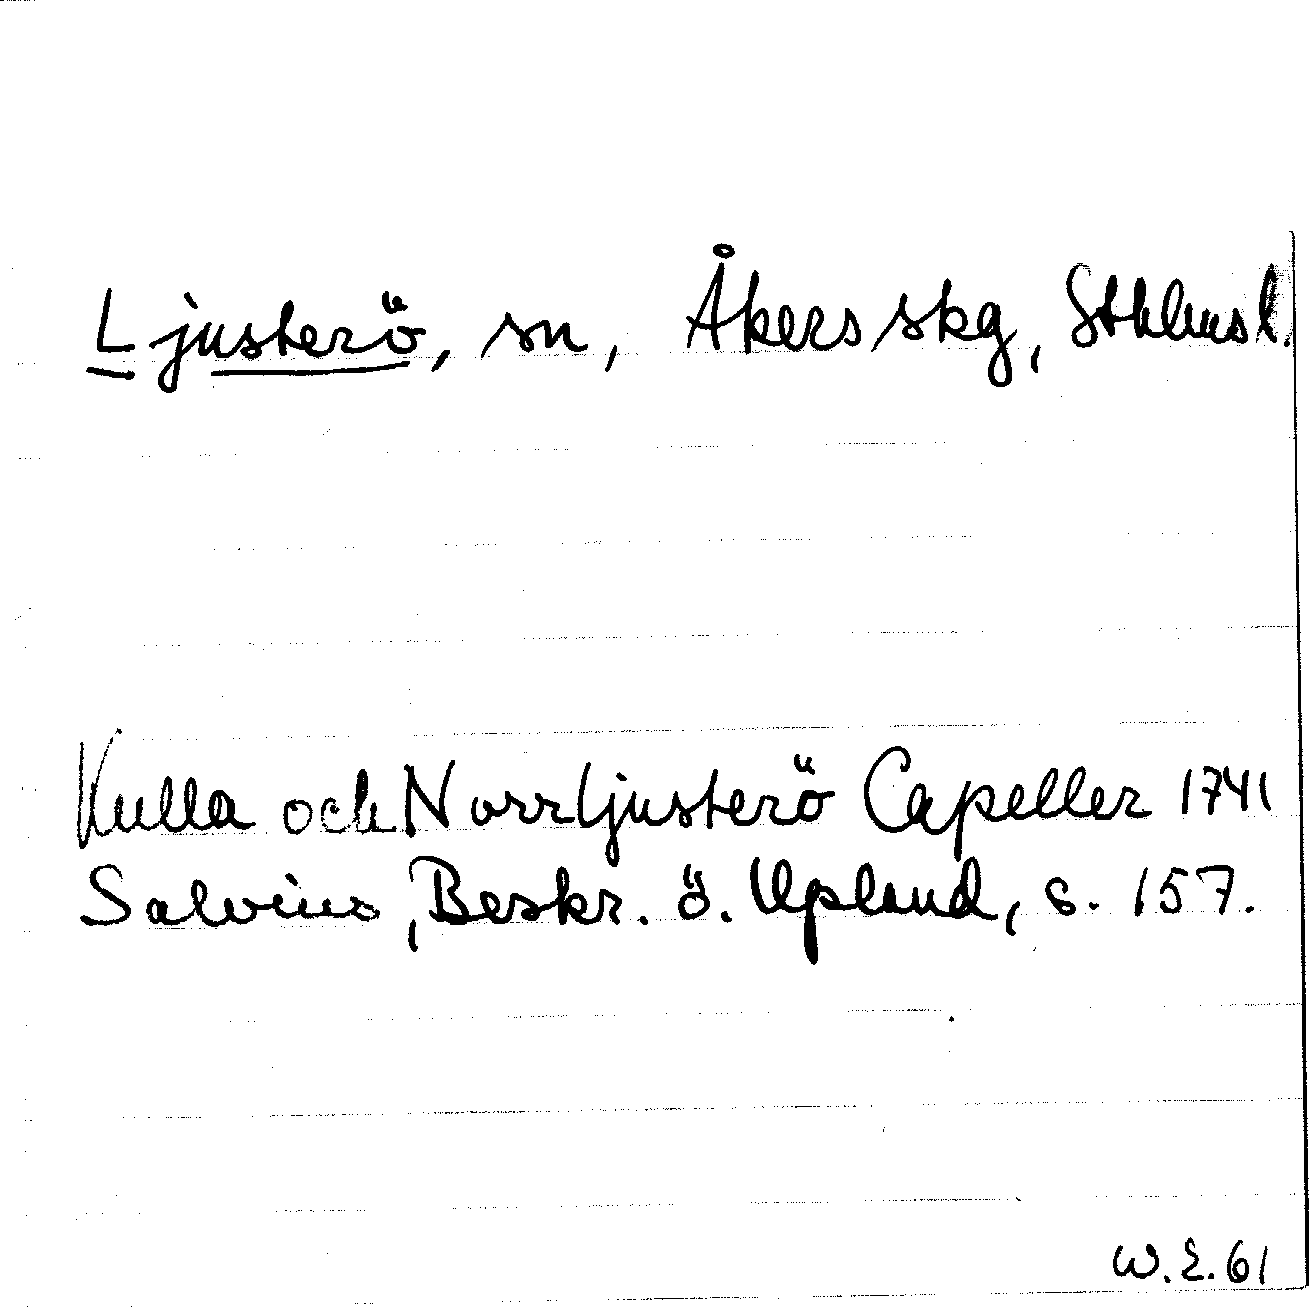 Ljusterö, sn, Åkers skg, Sthlmsl.
Kulla och Norrljusterö Capeller 1741
Salvius, Beskr. ö. Upland, s. 157.
W.E. 61